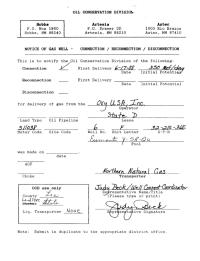 OIL CONSERVATION DIVISION
Hobbs
P.O. Box 1980
Hobbs, NM 88240
Artesia
P.O. Drawer DD
Artesia, NM 88210
Aztec
1000 Rio Brazos
Aztec, NM 87410
NOTICE OF GAS WELL - CONNECTION / RECONNECTION / DISCONNECTION
This is to notify the Oil Conservation Division of the following:
Connection First Delivery 350
Date Initial Potential
Reconnection First Delivery
Date Initial Potential
Disconnection
for delivery of gas from the Oxy USA, Inc.
Operator
State D
Lease
Land Type Oil Pipeline
6 F
Meter Code Site Code Well No. Unit Letter S-T-R
Pool
was made on
date
AOF
Choke
Northern Natural Gas
Transporter
OCD use only
County Lea
Land Type
Liq. Transporter None
Judy Beck / Well Connect Coordinator
Representative Name/Title
(Please type or print)
Judy Beck
Representative Signature
Note: Submit in duplicate to the appropriate district office.